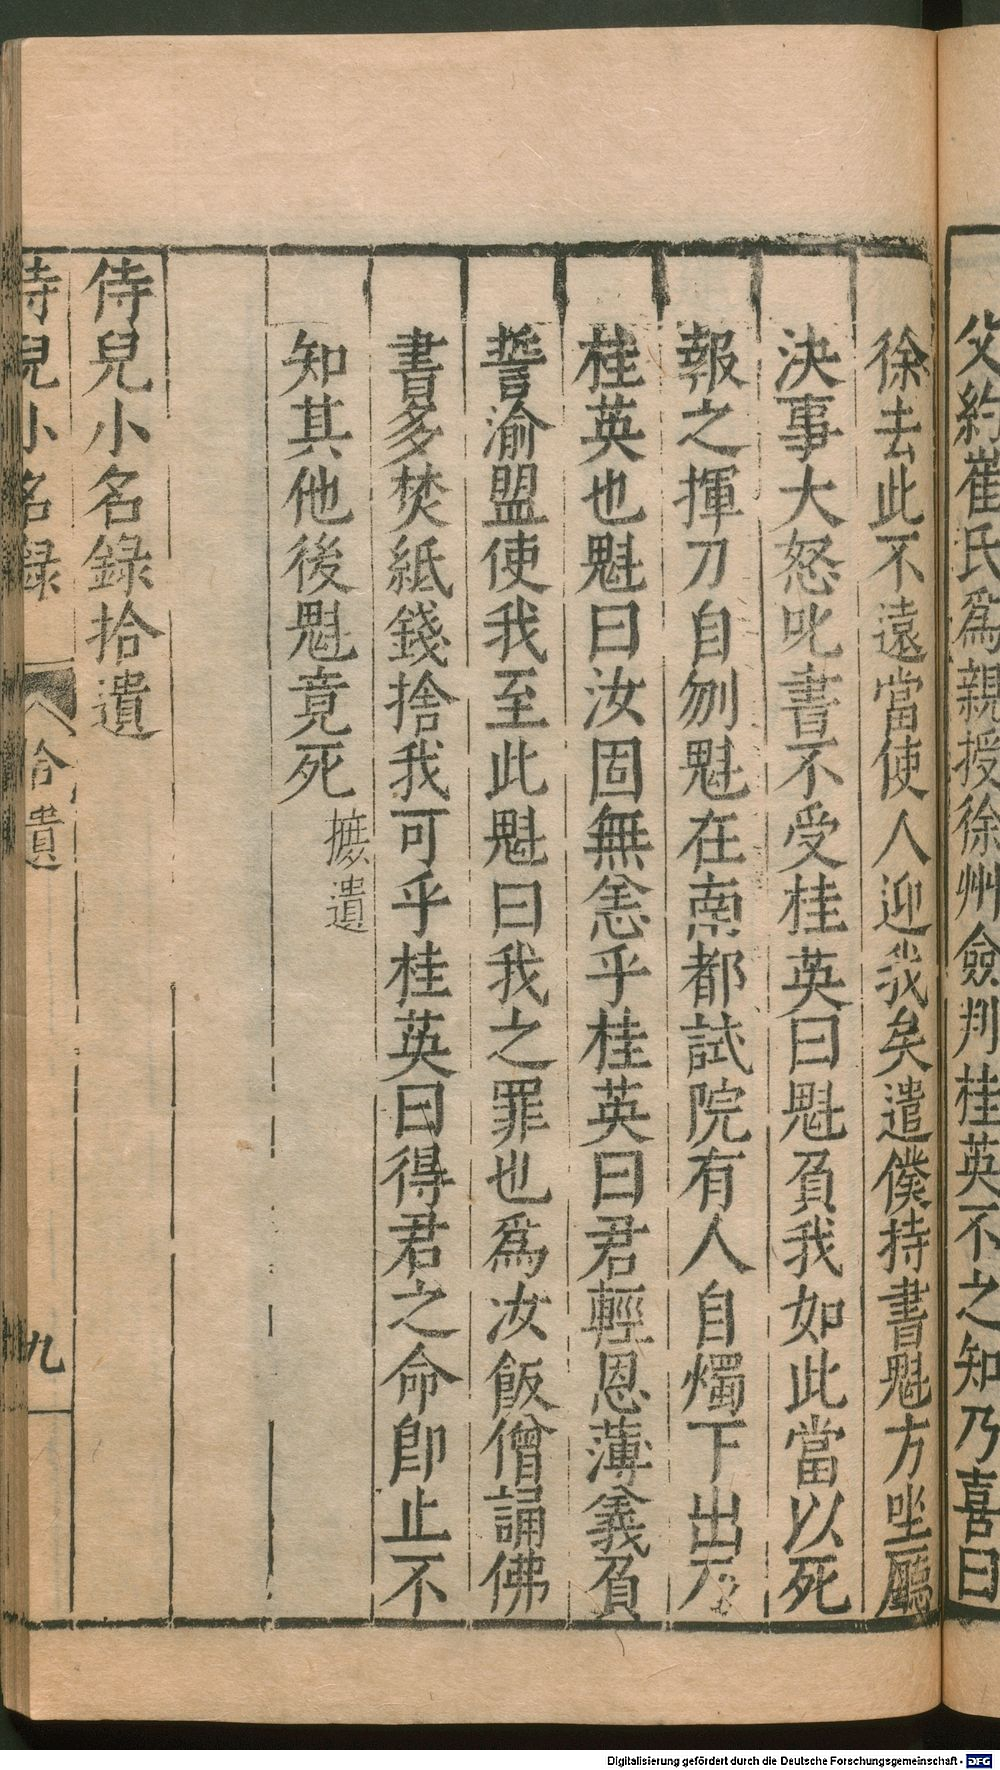 父約崔氏爲親授徐州僉判桂英不之知乃喜曰
徐去此不遠當使人迎我矣遣僕持書魁方坐廳
決事大怒叱書不受桂英曰魁負我如此當以死
報之揮刀自刎魁在南都試院有人自燭下出乃
桂英也魁曰汝固無恙乎桂英曰君輕恩薄義負
誓渝盟使我至此魁曰我之罪也爲汝飯僧誦佛
書多焚紙錢捨我可乎桂英曰得君之命即止不
知其他後魁竟死摭遺
侍兒小名錄拾遺
侍兒小名錄 拾遺 九
Digitalisierung gefördert durch die Deutsche Forschungsgemeinschaft - DFG